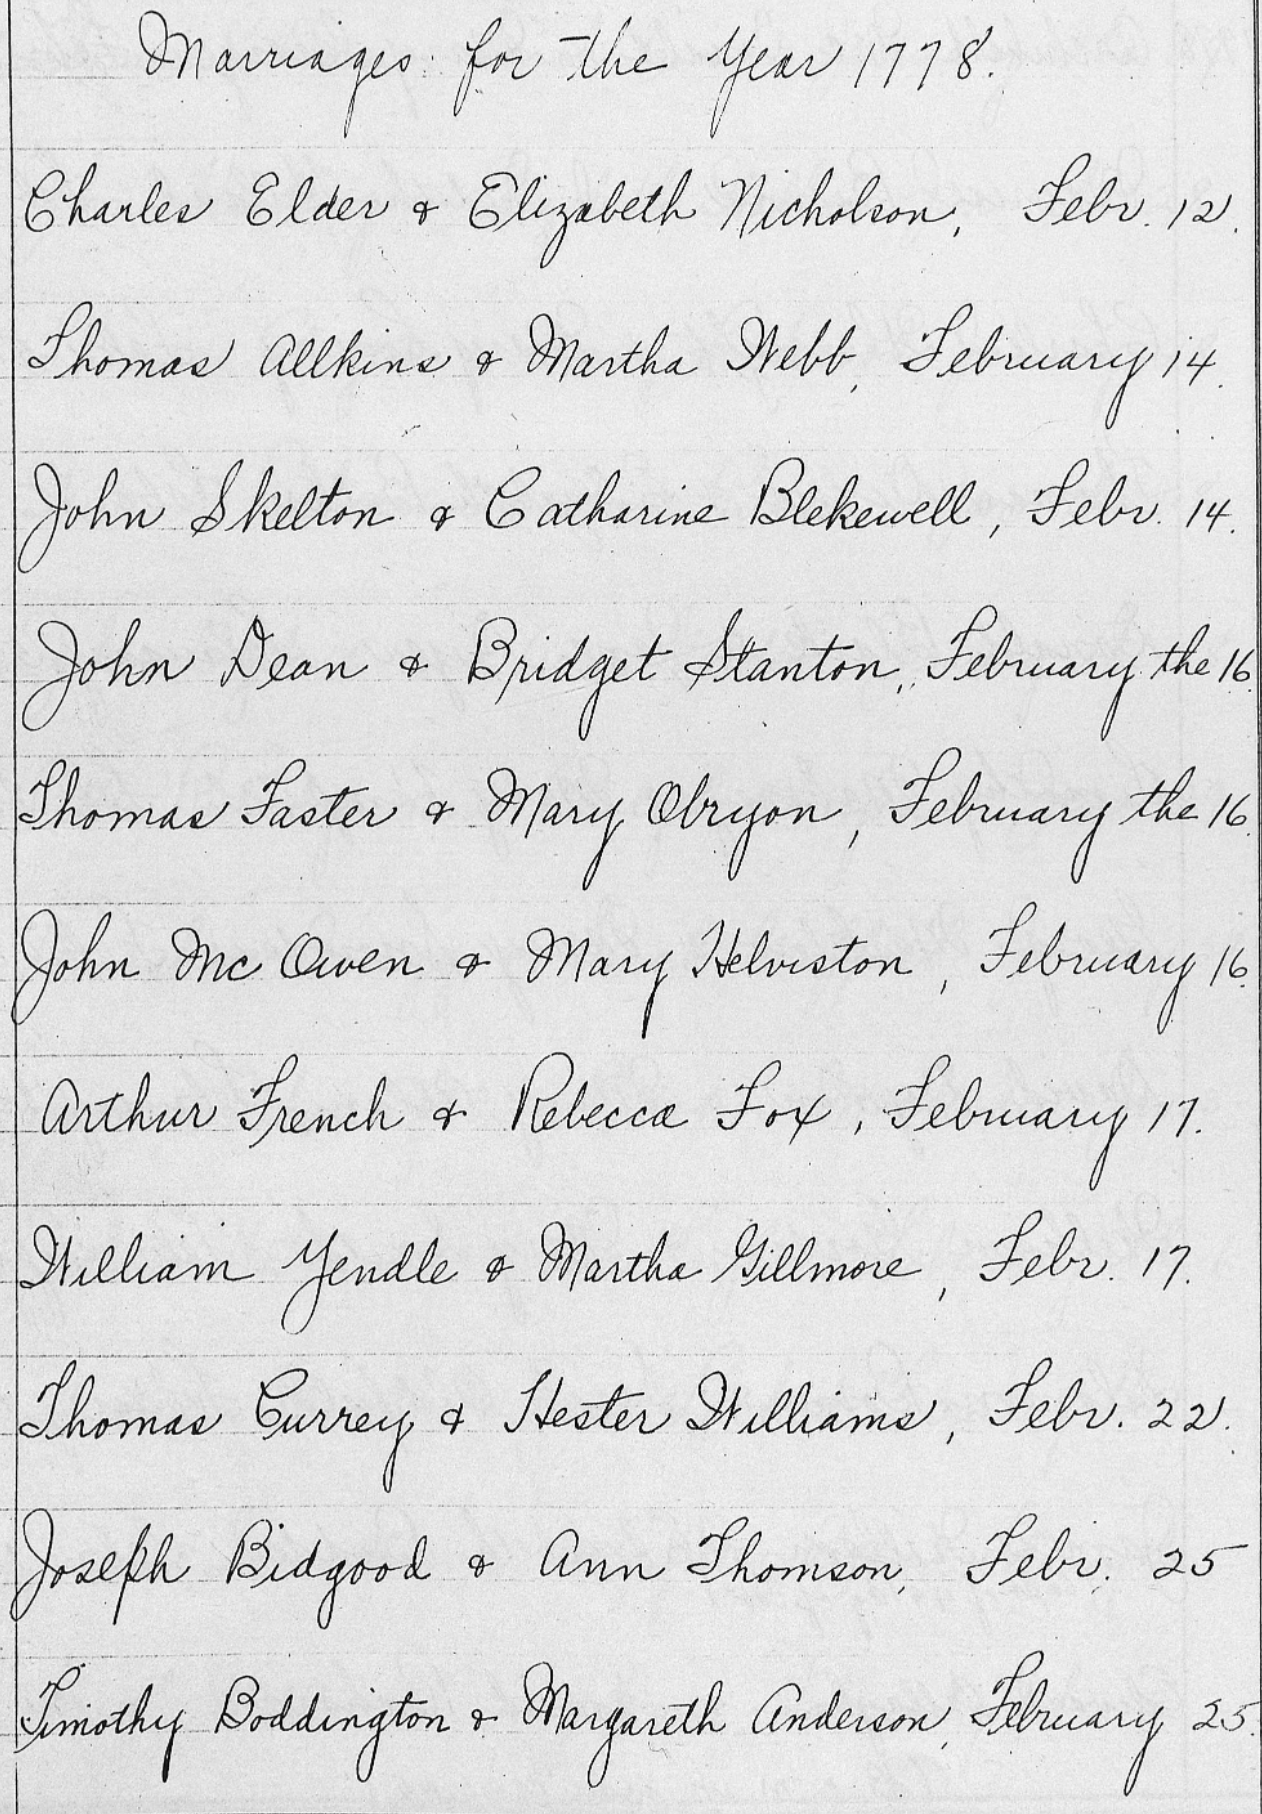 Marriages for the Year 1778.
Charles Elder & Elizabeth Nicholson, Febr. 12.
Thomas Allkins & Martha Webb, February 14.
John Skelton & Catharine Blekewell, Febr. 14.
John Dean & Bridget Stanton, February the 16.
Thomas Faster & Mary Obryon, February the 16.
John Mc Owen & Mary Helviston, February 16.
Arthur French & Rebecca Fox, February 17.
William Yendle & Martha Gillmore, Febr. 17.
Thomas Currey & Hester Williams, Febr. 22.
Joseph Bidgood & Ann Thomson, Febr. 25
Timothy Boddington & Margareth Anderson, February 25.